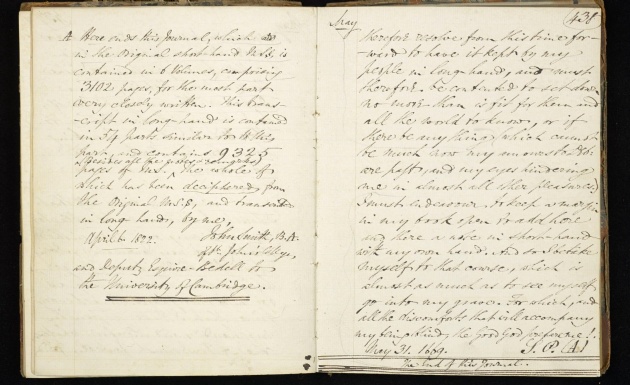 A Here ends this Journal, which as
in the Original short-hand MSS, is
contained in 6 Volumes, comprising
3102 pages, for the most part
very closely written. This trans-
cript in long-hand is contained
in 54 parts similar to this
part, and contains 9325
(besides all the notes &
pages of MS. The whole of
which has been deciphered, from
the Original MSS, and transcribed
in long-hand, by me,
April 1822. John Smith, B.A.
of St. John's College,
and Deputy Esquire-Bedell to
the University of Cambridge.
May
therefore resolve from this time for-
-ward to have it kept by my
people in long-hand, and must
therefore be contented to set down
no more than is fit for them and
all the world to know, or if
there be any thing, which cannot
be much now my amours to Deb.
are past, and my eyes hindering
me in almost all other pleasures,
I must endeavour to keep a margin
in my book open to add here
and there a note in short-hand
with my own hand. And so I betake
myself to that course, which is
almost as much as to see myself
go into my grave. For which, and
all the discomforts that will accompany
my being blind, the Good God prepare me!.
May 31. 1669. S. P. A
The End of this Journal.